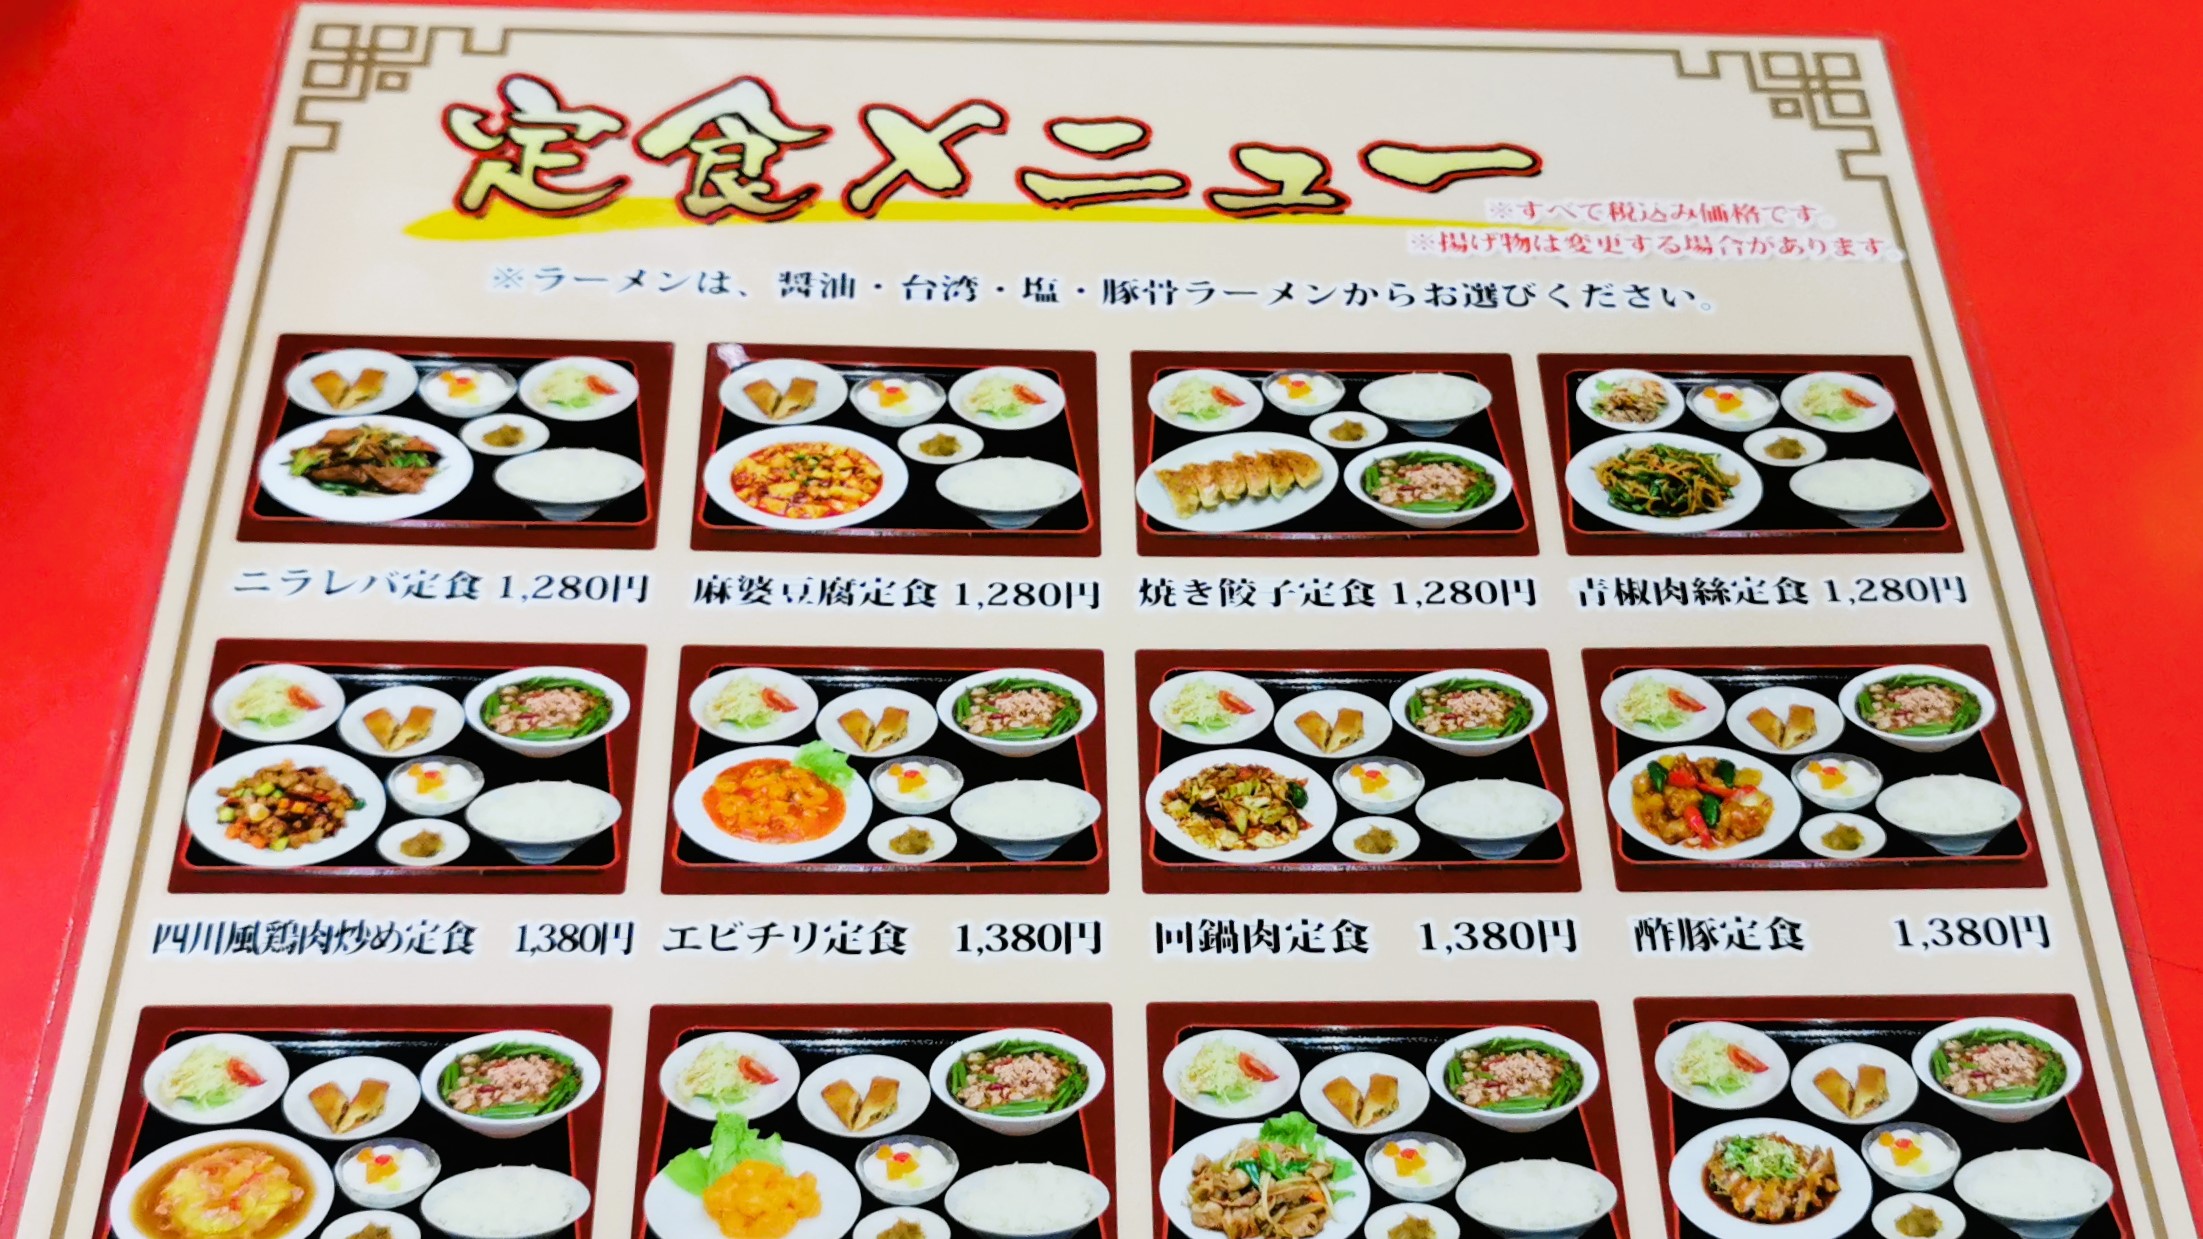 定食メニュー
※すべて税込み価格です。
※揚げ物は変更する場合があります。
※ラーメンは、醤油・台湾・塩・豚骨ラーメンからお選びください。
ニラレバ定食 1,280円
麻婆豆腐定食 1,280円
焼き餃子定食 1,280円
青椒肉絲定食 1,280円
四川風鶏肉炒め定食 1,380円
エビチリ定食 1,380円
回鍋肉定食 1,380円
酢豚定食 1,380円